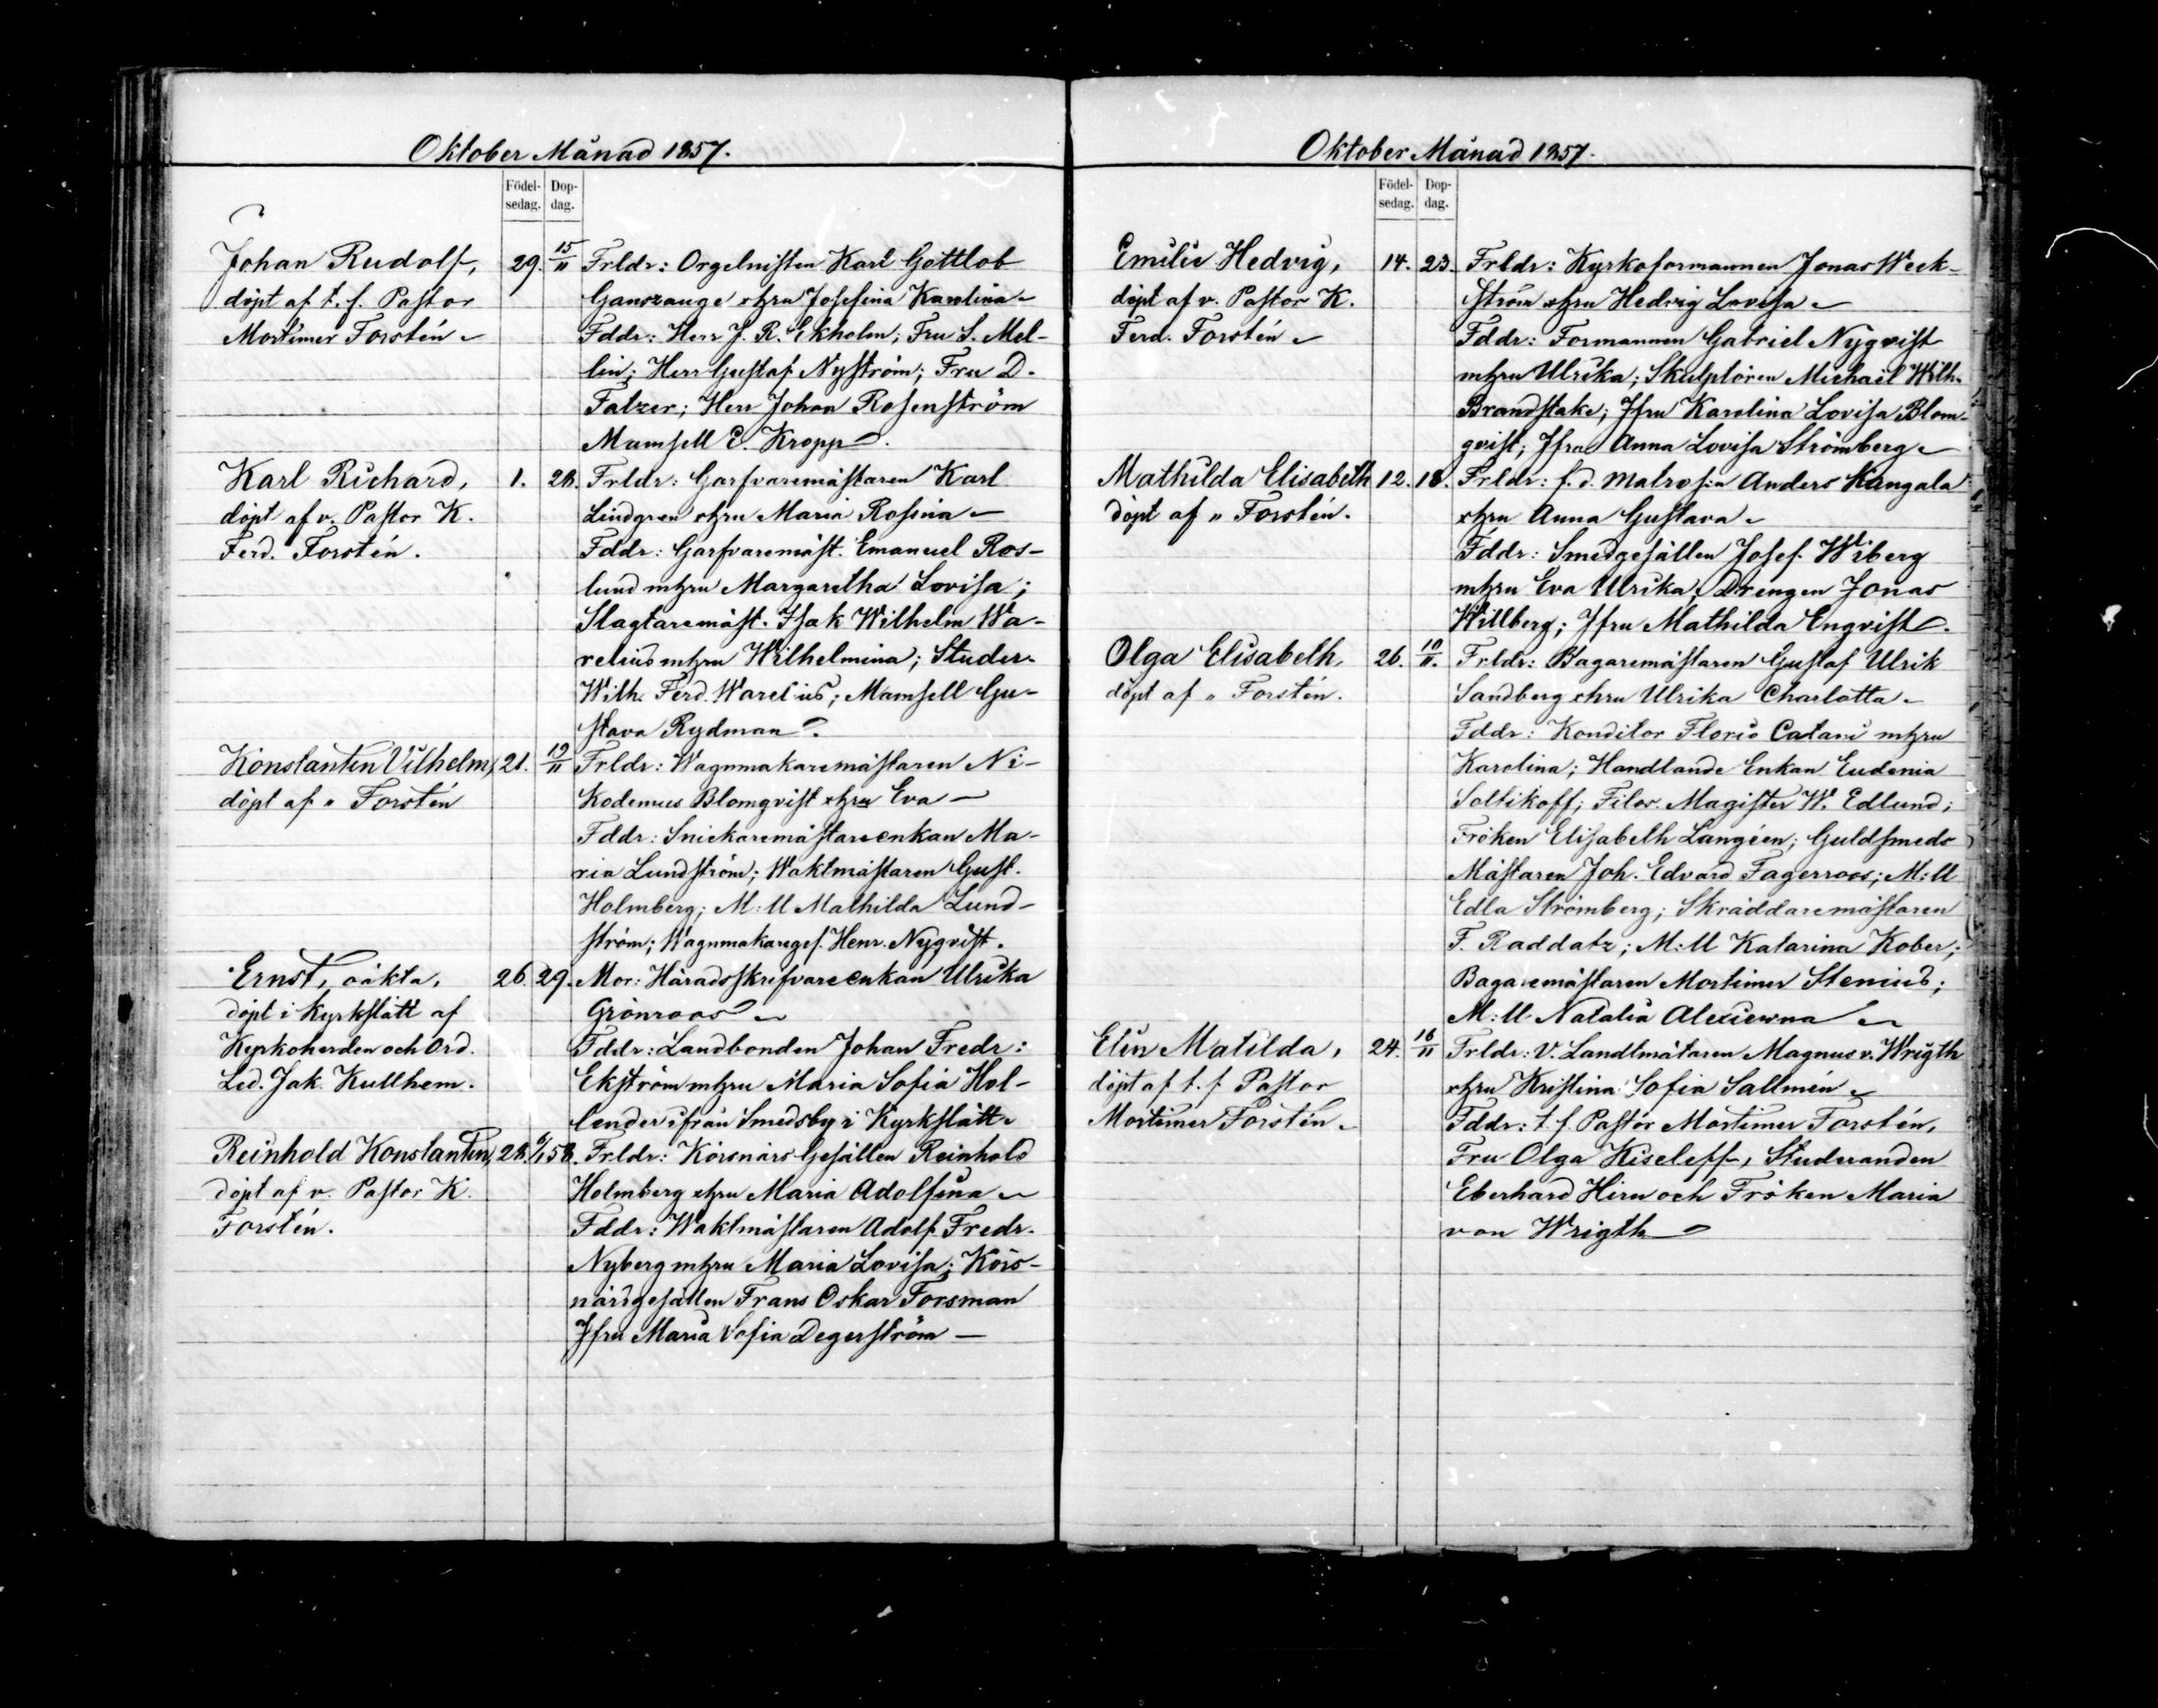 Oktober Månad 1857.
Födel-
sedag.
Dop-
dag.
Johan Rudolf,
döpt af t. f. Pastor
Mortimer Forstén
29. 15/11
Frldr: Orgelnisten Karl Gottlob
Ganszauge o hzru Josefina Karolina
Fddr: Herr J. R. Ekholm; Fru S. Mel-
lin; Herr Gustaf Nyström; Fru D.
Fatzer; Herr Johan Rosenström
Mamsell E. Kropp.
Karl Richard,
döpt af v. Pastor K.
Ferd. Forstén.
1. 28.
Frldr: Garfvaremästaren Karl
Lindgren o hzru Maria Rosina
Fddr: Garfvaremäst. Emanuel Ros-
lund m hzru Margaretha Lovisa;
Slagtaremäst. Isak Wilhelm Wa-
relius m hzru Wilhelmina; Studer.
Wilh. Ferd. Warelius; Mamsell Gu-
stava Rydman.
Konstantin Vilhelm,
döpt af " Forstén
21. 19/11
Frldr: Wagnmakaremästaren Ni-
kodemus Blomqvist o hzru Eva
Fddr: Snickaremästareenkan Ma-
ria Lundström; Waktmästaren Gust.
Holmberg; M:ll Mathilda Lund-
ström; Wagnmakareges. Henr. Nyqvist.
Ernst, oäkta,
döpt i Kyrkslätt af
Kyrkoherden och Ord.
Led. Jak. Kullhem.
26. 29.
Mor: Häradsskrifvareenkan Ulrika
Grönroos
Fddr: Landbonden Johan Fredr:
Ekström m hzru Maria Sofia Hol-
lender ifrån Smedsby i Kyrkslätt
Reinhold Konstantin,
döpt af v. Pastor K.
Forstén.
28. 6/1 58.
Frldr: Körsnärs Gesällen Reinhold
Holmberg o hzru Maria Adolfina
Fddr: Waktmästaren Adolf Fredr.
Nyberg m hzru Maria Lovisa; Körs-
närsgesällen Frans Oskar Forsman
Jfru Maria Sofia Degerström
Oktober Månad 1857.
Födel-
sedag.
Dop-
dag.
Emilie Hedvig,
döpt af v. Pastor K.
Ferd. Forstén
14. 23.
Frldr: Kyrkoformannen Jonas Weck-
ström o hzru Hedvig Lovisa
Fddr: Formannen Gabriel Nyqvist
m hzru Ulrika; Skulptören Michael Wilh.
Brandstake; Jfru Karolina Lovisa Blom-
qvist; Jfru Anna Lovisa Strömberg
Mathilda Elisabeth
döpt af " Forstén.
12. 18.
Frldr: f. d. Matrosen Anders Kangala
o hzru Anna Gustava
Fddr: Smedgesällen Josef Wiberg
m hzru Eva Ulrika; Drengen Jonas
Willberg; Jfru Mathilda Enqvist.
Olga Elisabeth,
döpt af " Forstén.
26. 10/11.
Frldr: Bagaremästaren Gustaf Ulrik
Sandberg o hzru Ulrika Charlotta
Fddr: Konditor Florio Catani m hzru
Karolina; Handlande Enkan Eudenia
Soltikoff; Filos. Magister W. Edlund;
Fröken Elisabeth Langéen; Guldsmeds
Mästaren Joh. Edvard Fagerroos; M:ll
Edla Strömberg; Skräddaremästaren
F. Raddatz; M:ll Katarina Kober;
Bagaremästaren Mortimer Stenius;
M:ll Natalia Alexiewna
Elin Matilda,
döpt af t. f. Pastor
Mortimer Forstén
24. 16/11
Frldr: V. Landtmätaren Magnus v. Wrigth
o hzru Kristina Sofia Sallmén
Fddr: t. f. Pastor Mortimer Forstén,
Fru Olga Kiseleff, Studeranden
Eberhard Hirn och Fröken Maria
von Wrigth